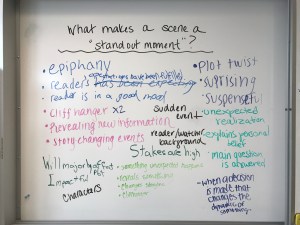 What makes a scene a
"stand out moment"?
• epiphany
expectations have been
• readers
• reader is in a good mood
• cliff hanger x2
• Revealing new information
• story changing events
sudden
event
reader/watcher
background
Stakes are high
Will majorly affect
Plot
Impactful
characters
• something unexpected happens
• climax
• plot twist
• suprising
• suspenseful
• unexpected
realization
• explains personal
belief
• main question
is answered
• when a decision
is made that
changes the